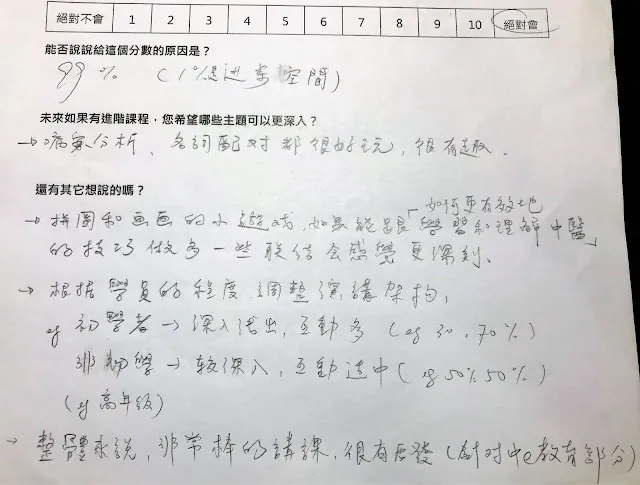 絕對不會 1 2 3 4 5 6 7 8 9 10 絕對會
能否說說給這個分數的原因是？
99% (1%是進步空間)
未來如果有進階課程，您希望哪些主題可以更深入？
→病氣分析、名詞配对都很好玩，很有趣.
還有其它想說的嗎？
→拼圖和画画的小遊戏,如果能跟「如何更有效地學習和理解中醫」
的技巧做多一些联结会感覺更深刻.
→根据學員的程度,調整演講架构,
eg 初學者→深入淺出,互動多(eg 30,70%)
非初學→较深入,互動适中(eg 50%50%)
(eg 高年級)
→整體來說,非常棒的講課,很有啟發(針对中e教育部分)